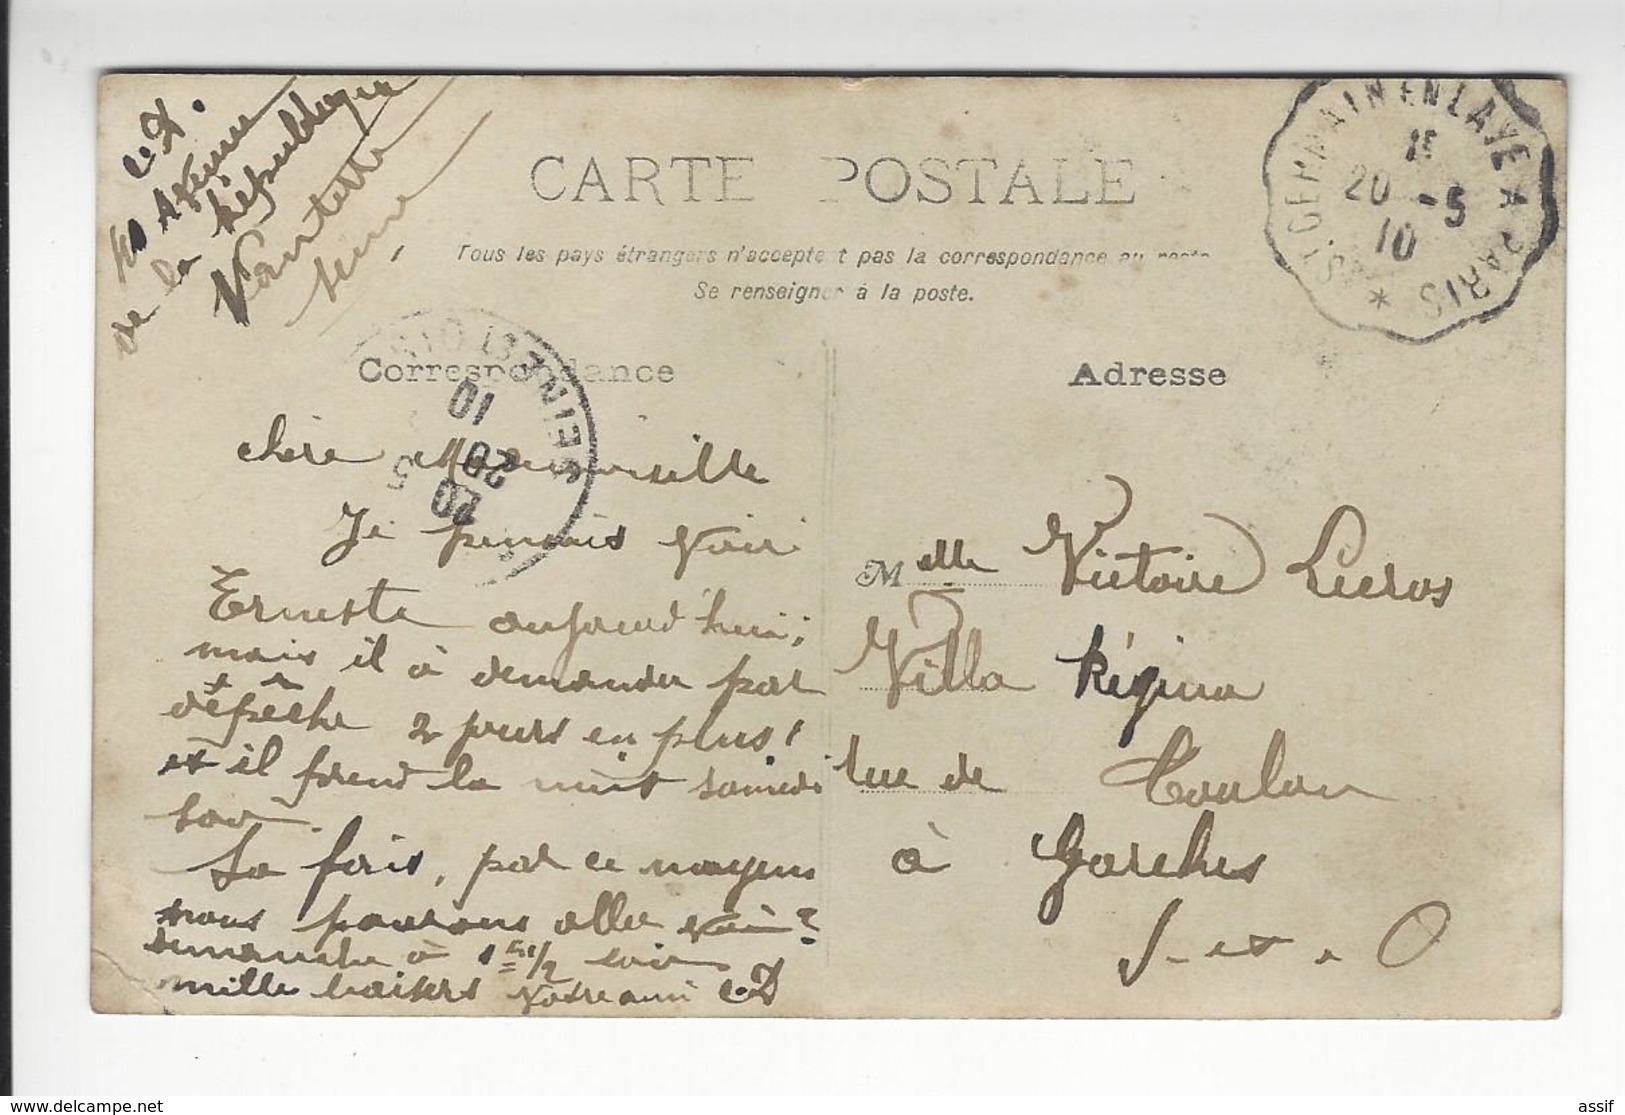 C. D.
Avenue
de la République
Nanterre
Seine
CARTE POSTALE
Tous les pays étrangers n'acceptent pas la correspondance au recto
Se renseigner à la poste.
ST GERMAIN EN LAYE A PARIS *
20 -5
10
Correspondance
SEINE ET OISE
10
20
5
Adresse
chère Mademoiselle
Je pensais voir
Erneste aujourd'hui;
mais il à demander par
dépêche 2 jours en plus!
et il prend la nuit samedi
soir.
La fois, par ce moyen
nous pourons aller voir?
dimanche à 1 h 1/2 soir
mille baisers Votre ami C.D
Melle Victoire Lucros
Villa Régina
rue de Toulon
à Garches
S-et-O
delcampe.net
assif